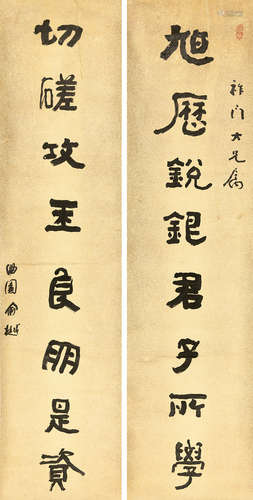 門大兄屬
旭歷銳銀君子所學
切磋攻玉良朋是資
曲園俞樾